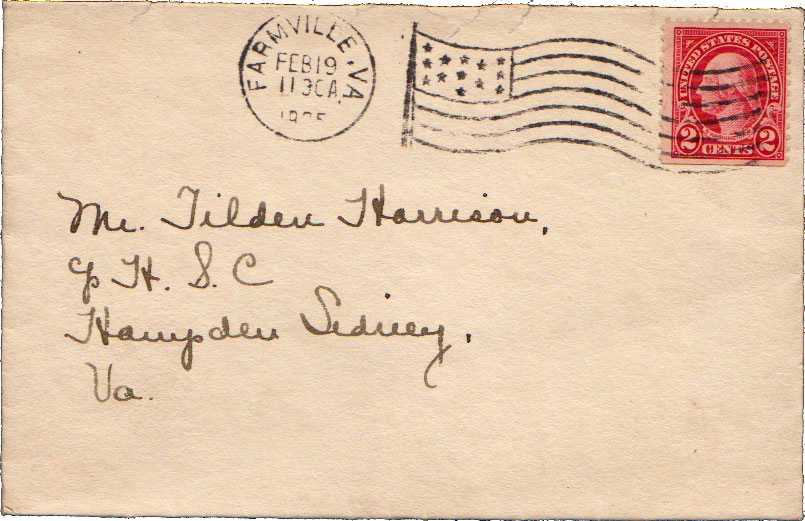 FARMVILLE, VA
FEB 19
11 30 A
1925
UNITED STATES POSTAGE
2 CENTS 2
Mr. Tilden Harrison,
c/o H. S. C
Hampden Sidney,
Va.